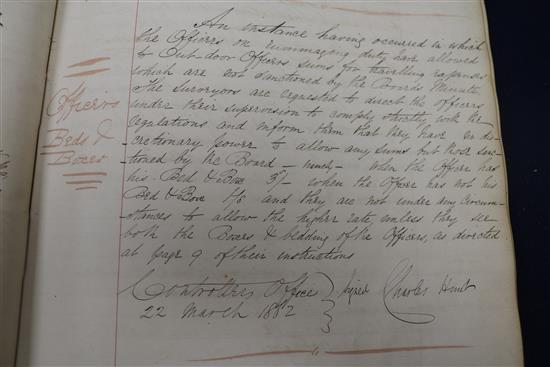 An instance having occurred in which
the Officers on rummaging duty have allowed
to Out-door Officers sums for travelling expenses
which are not sanctioned by the Boards Minute,
The Surveyors are requested to direct the officers
under their supervision to comply strictly with the
regulations and inform them that they have no dis-
-cretionary power to allow any sums but those sanc-
-tioned by the Board - - when the Officer has
his Bed & Box 3/- when the Officer has not his
Bed & Box 1/6 and they are not under any circum-
-stances to allow the higher rate, unless they see
both the Boxes & bedding of the Officers, as directed
at page 9 of their instructions
Officers
Beds &
Boxes
Controllers Office } signed Charles Hunt
22 March 1882